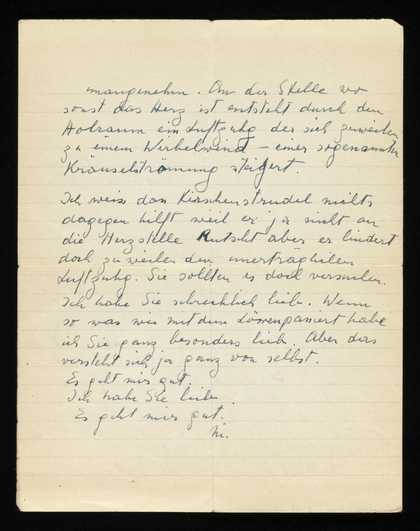 unangenehm. An der Stelle wo
sonst das Herz ist entsteht durch den
Holraum ein Luftzuhg der sich zuweilen
zu einem Wirbelwind – einer sogenannten
Kräuselströmung steigert.
Ich weiss dass Kirschenstrudel nichts
dagegen hilft weil er ja nicht an
die Herzstelle rutscht aber er lindert
doch zuweilen den unerträglichen
Luftzuhg. Sie sollten es doch versuchen.
Ich habe Sie schrecklich lieb. Wenn
so was wie mit dem Löwenpaniert habe
ich Sie ganz besonders lieb. Aber das
versteht sich ja ganz von selbst.
Es geht mir gut.
Ich habe Sie lieb.
Es geht mir gut.